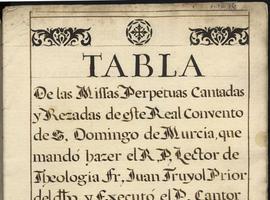 TABLA
De las Missas Perpetuas Cantadas
y Rezadas de este Real Convento
de S. Domingo de Murcia, que
mandó hazer el R. P. Lector de
Theologia Fr, Juan Truyol Prior
del dho, y Executó el P. Cantor